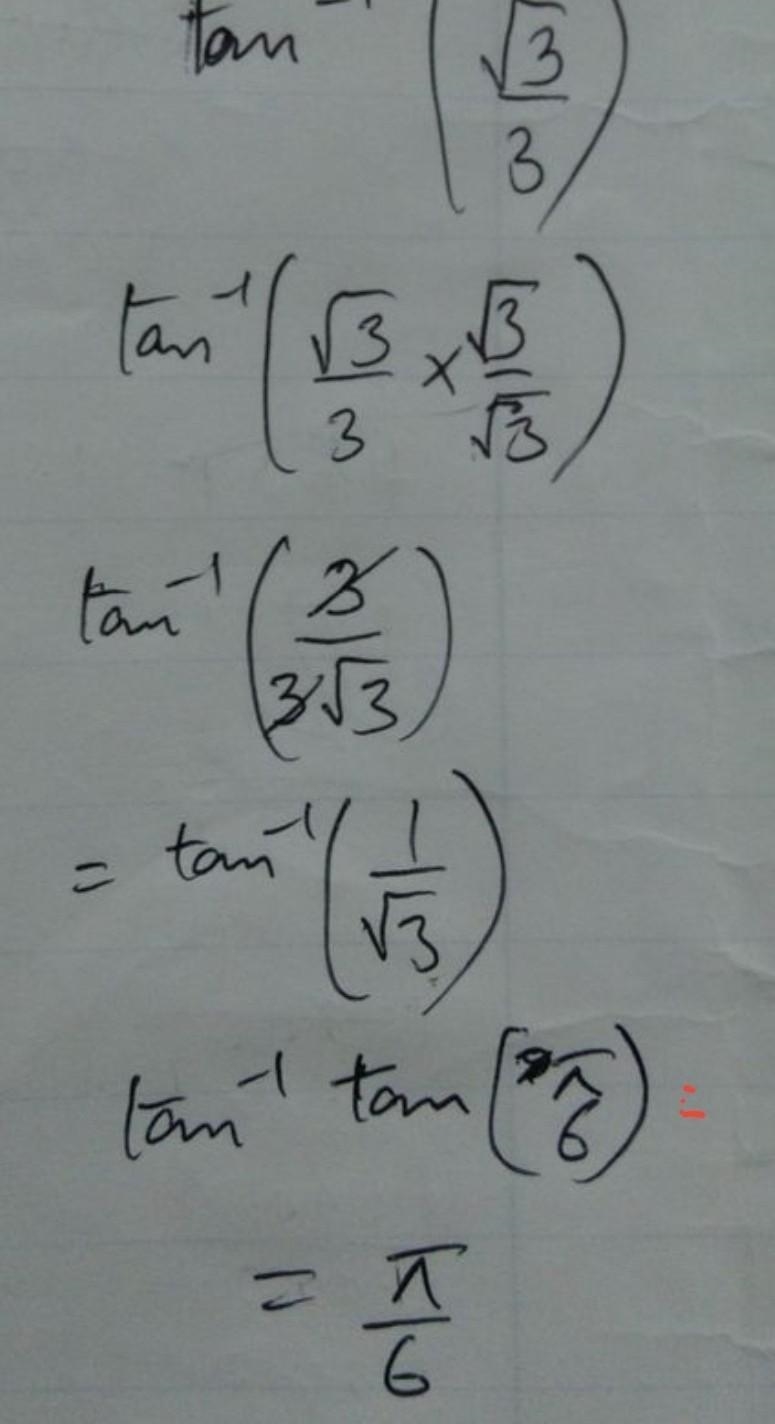 tan⁻¹ (√3/3)
tan⁻¹ (√3/3 × √3/√3)
tan⁻¹ (3/3√3)
= tan⁻¹ (1/√3)
tan⁻¹ tan (π/6) =
= π/6